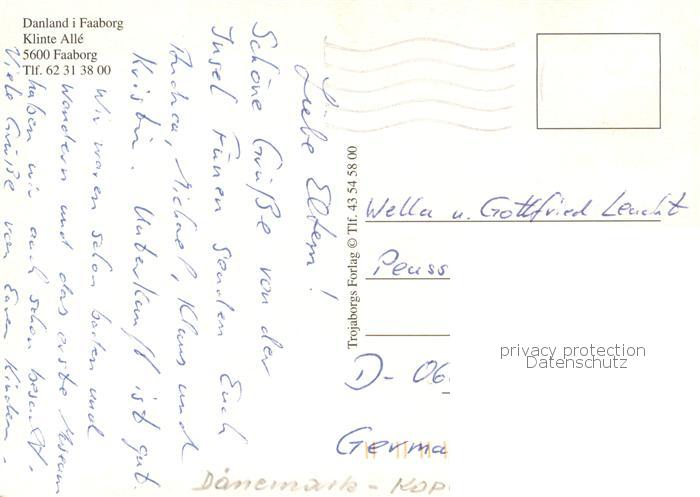 Danland i Faaborg
Klinte Allé
5600 Faaborg
Tlf. 62 31 38 00
Liebe Eltern!
Schöne Grüße von der
Insel Fünen senden Euch
Andrea, Michael, Klaus und
Kristin. Unterkunft ist gut.
Wir waren schon baden und
wandern und das erste Museum
haben wir auch schon besucht.
Viele Grüße von Euren Kindern.
Trojaborgs Forlag © Tlf. 43 54 58 00
Wella u. Gottfried Leucht
Peuss
D- 06
Germa
privacy protection
Datenschutz
Dänemark - KOP